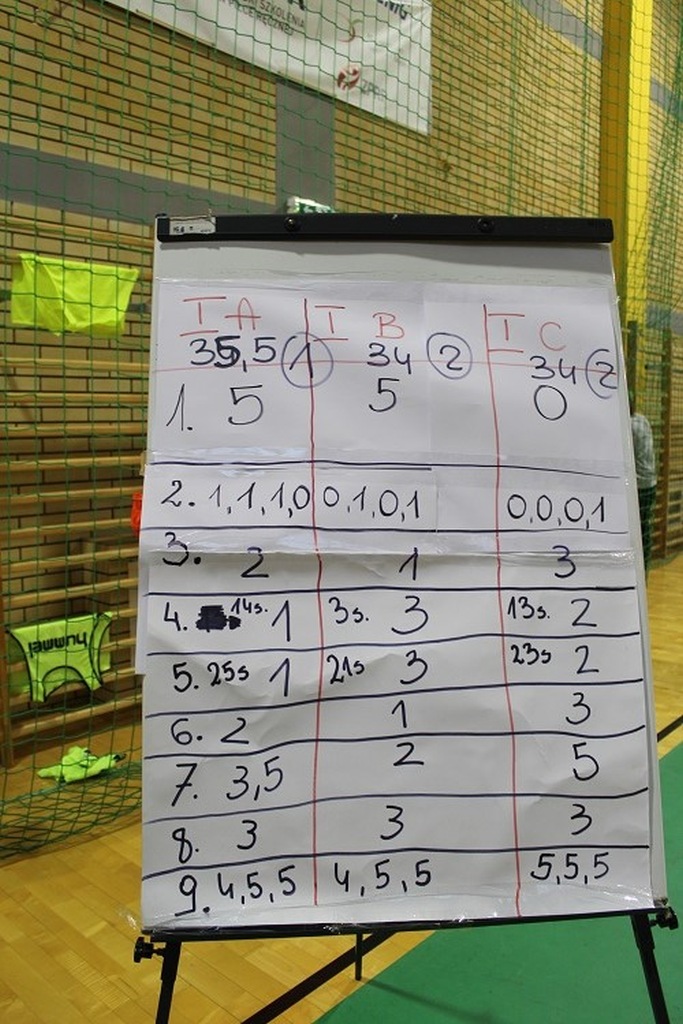 SZKOLENIA
ZPRP
I A I B I C
35,5 1 34 2 34 2
1. 5 5 0
2. 1,1,1,0 0,1,0,1 0,0,0,1
3. 2 1 3
4. 14s. 1 3s. 3 13s. 2
5. 25s 1 21s 3 23s 2
6. 2 1 3
7. 3,5 2 5
8. 3 3 3
9. 4,5,5 4,5,5 5,5,5
hummel